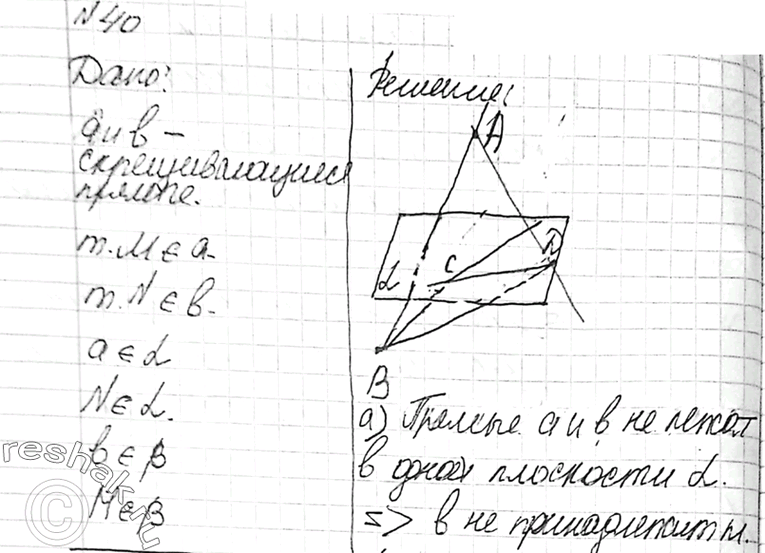 N 40
Дано:
a и в –
скрещивающиеся
прямые.
т. М ∈ a
т. N ∈ в.
a ∈ α
N ∈ α.
в ∈ β
М ∈ β
Решение:
A
D
C
α
B
а) Прямые а и в не лежат
в одной плоскости α.
=> в не принадлежит
reshak.ru